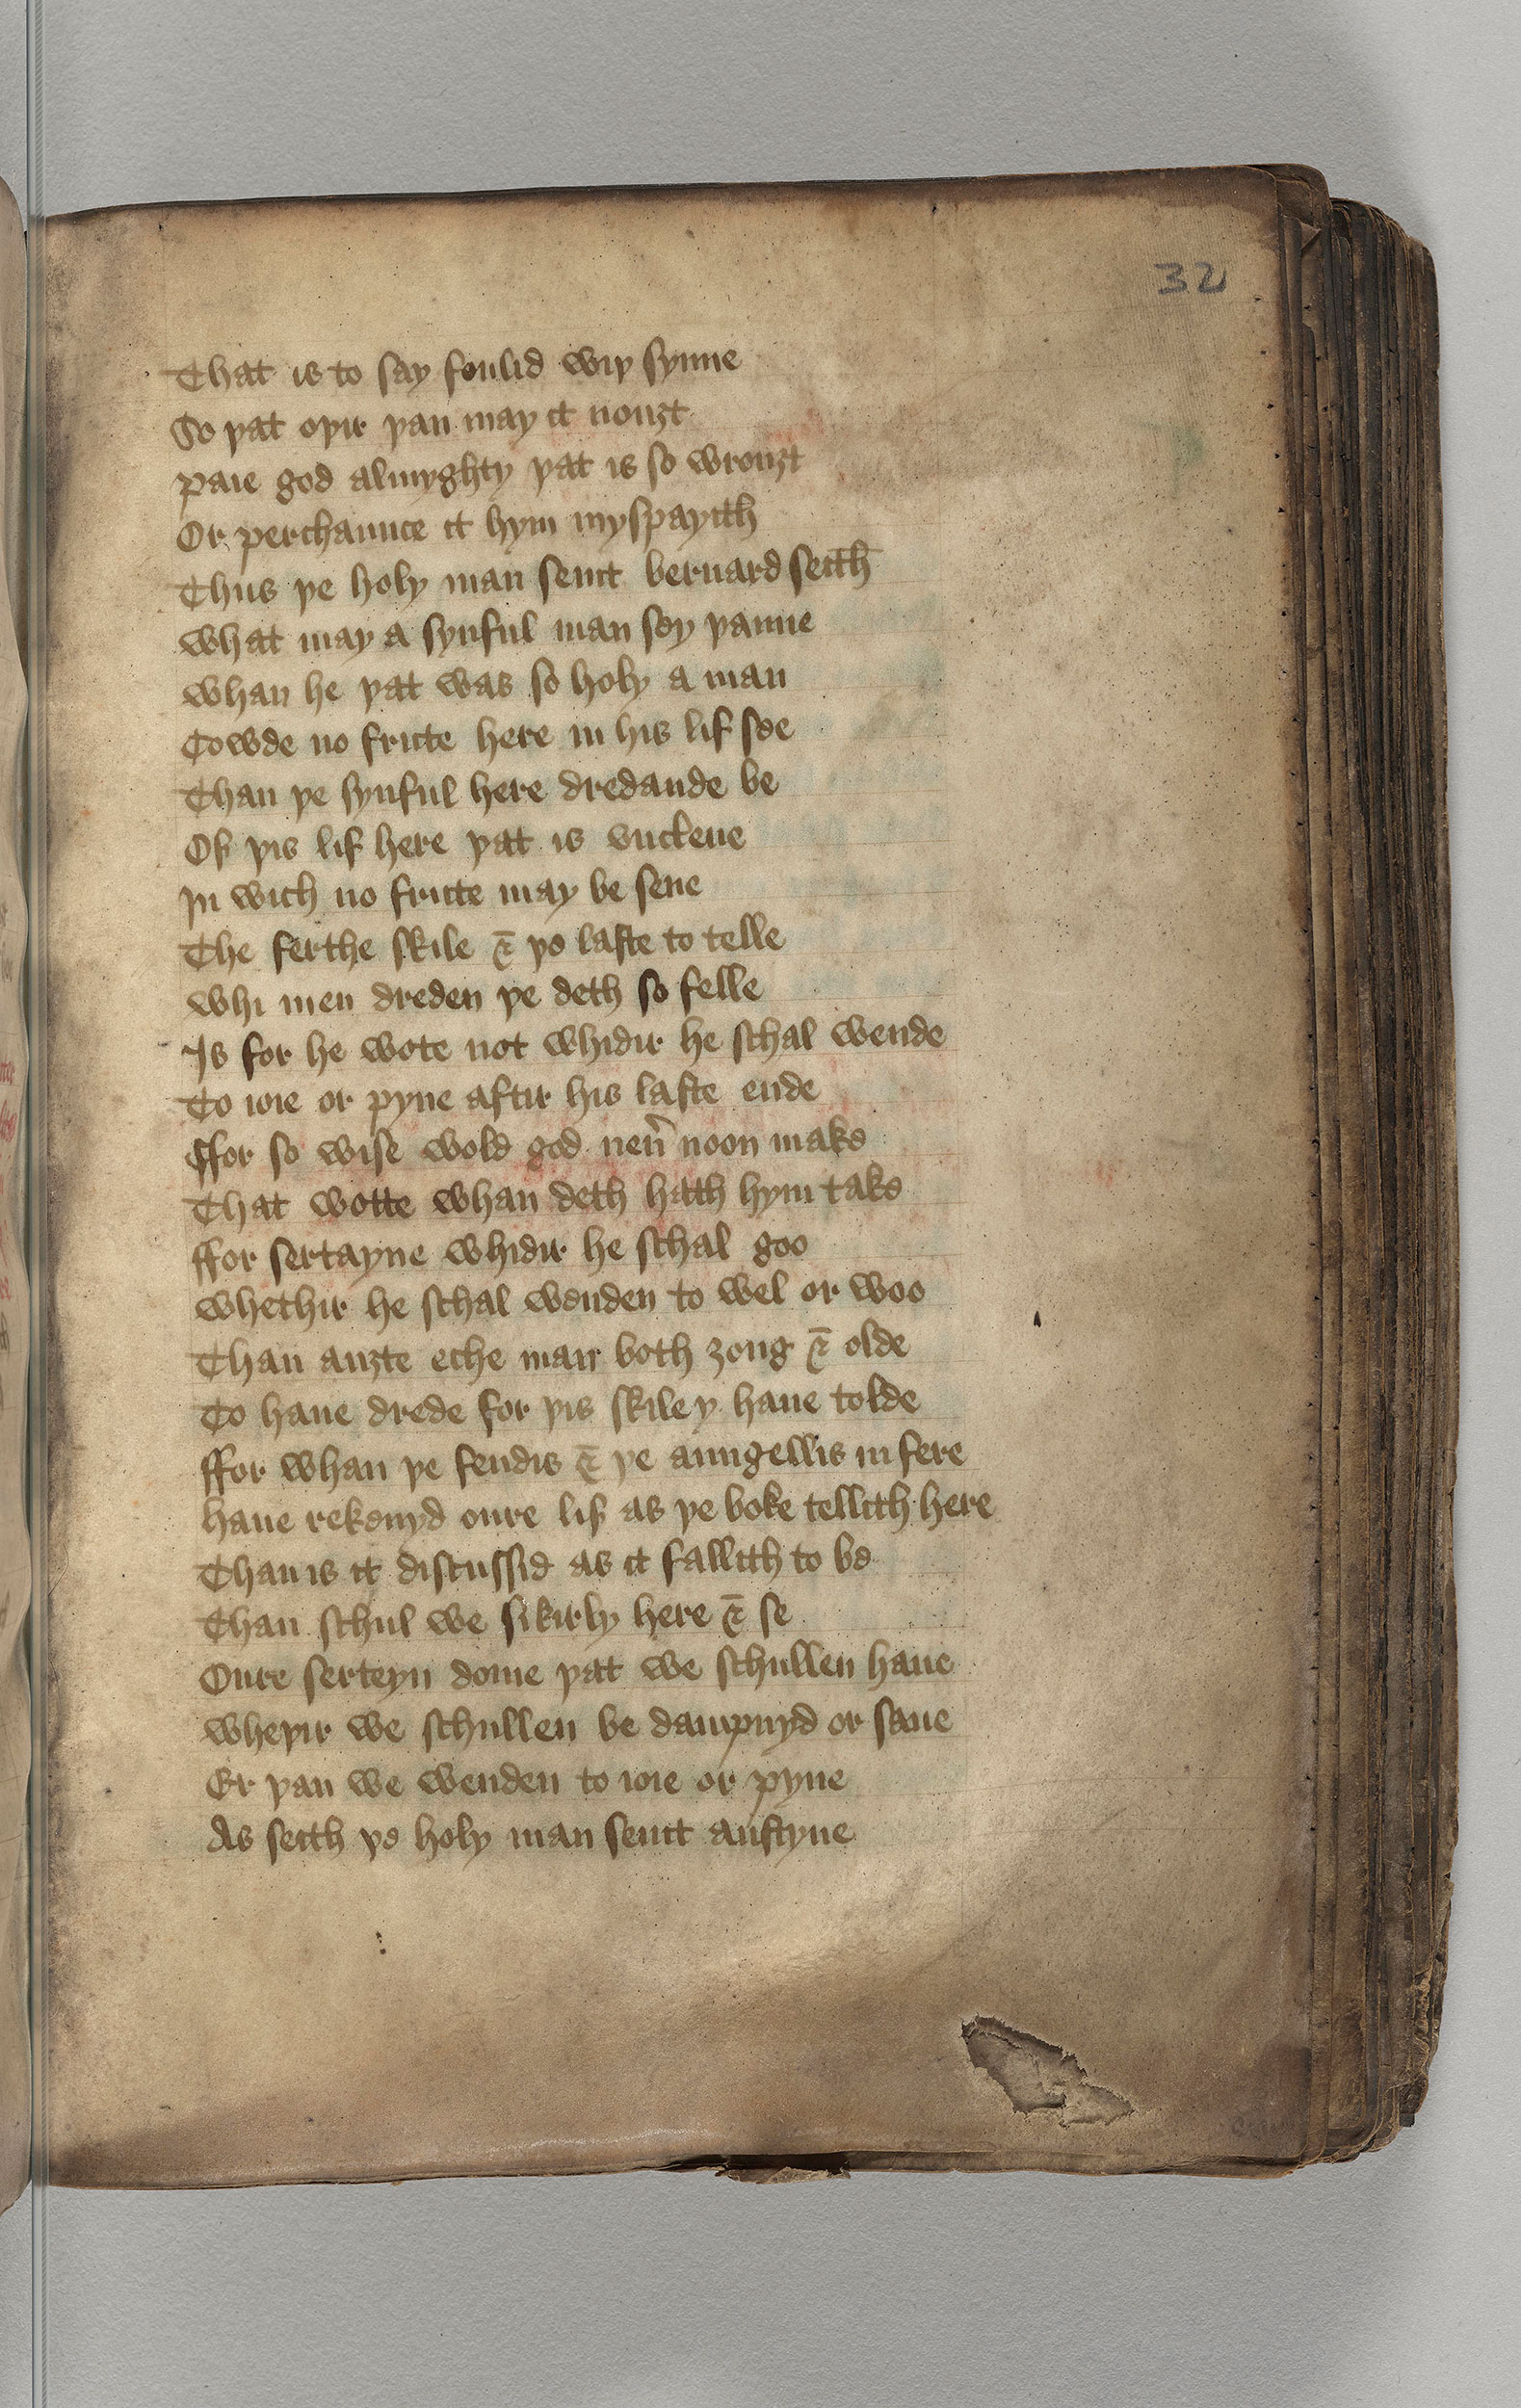 32
That is to say foulid wiþ synne
So þat oþir þan may it nouȝt
paie god almyghty þat is so wrouȝt
Or perchaunce it hym myspayith
Thus þe holy man seint bernard seith
what may a synful man sey þanne
whan he þat was so holy a man
Cowde no fritte here in his lif see
Than þe synful here dredande be
Of þis lif here þat is vnclene
In wich no fritte may be sene
The ferthe skile & þe laste to telle
whi men dreden þe deth so felle
Is for he wote not whidir he schal wende
To ioie or pyne aftir his laste ende
ffor so wise wold god neu̾ noon make
That wotte whan deth hath hym take
ffor sertayne whidir he schal goo
whethir he schal wenden to wel or woo
Than auȝte eche man both ȝong & olde
To haue drede for þis skile y haue tolde
ffor whan þe fendis & þe aungellis in fere
haue rekenyd oure lif as þe boke tellith here
Than is it discussid as it fallith to be
Than schul we sikirly here & se
Oure serteyn dome þat we schullen haue
wheþir we schullen be dampnyd or saue
Er þan we wenden to ioie or pyne
As seith þe holy man seint austyne